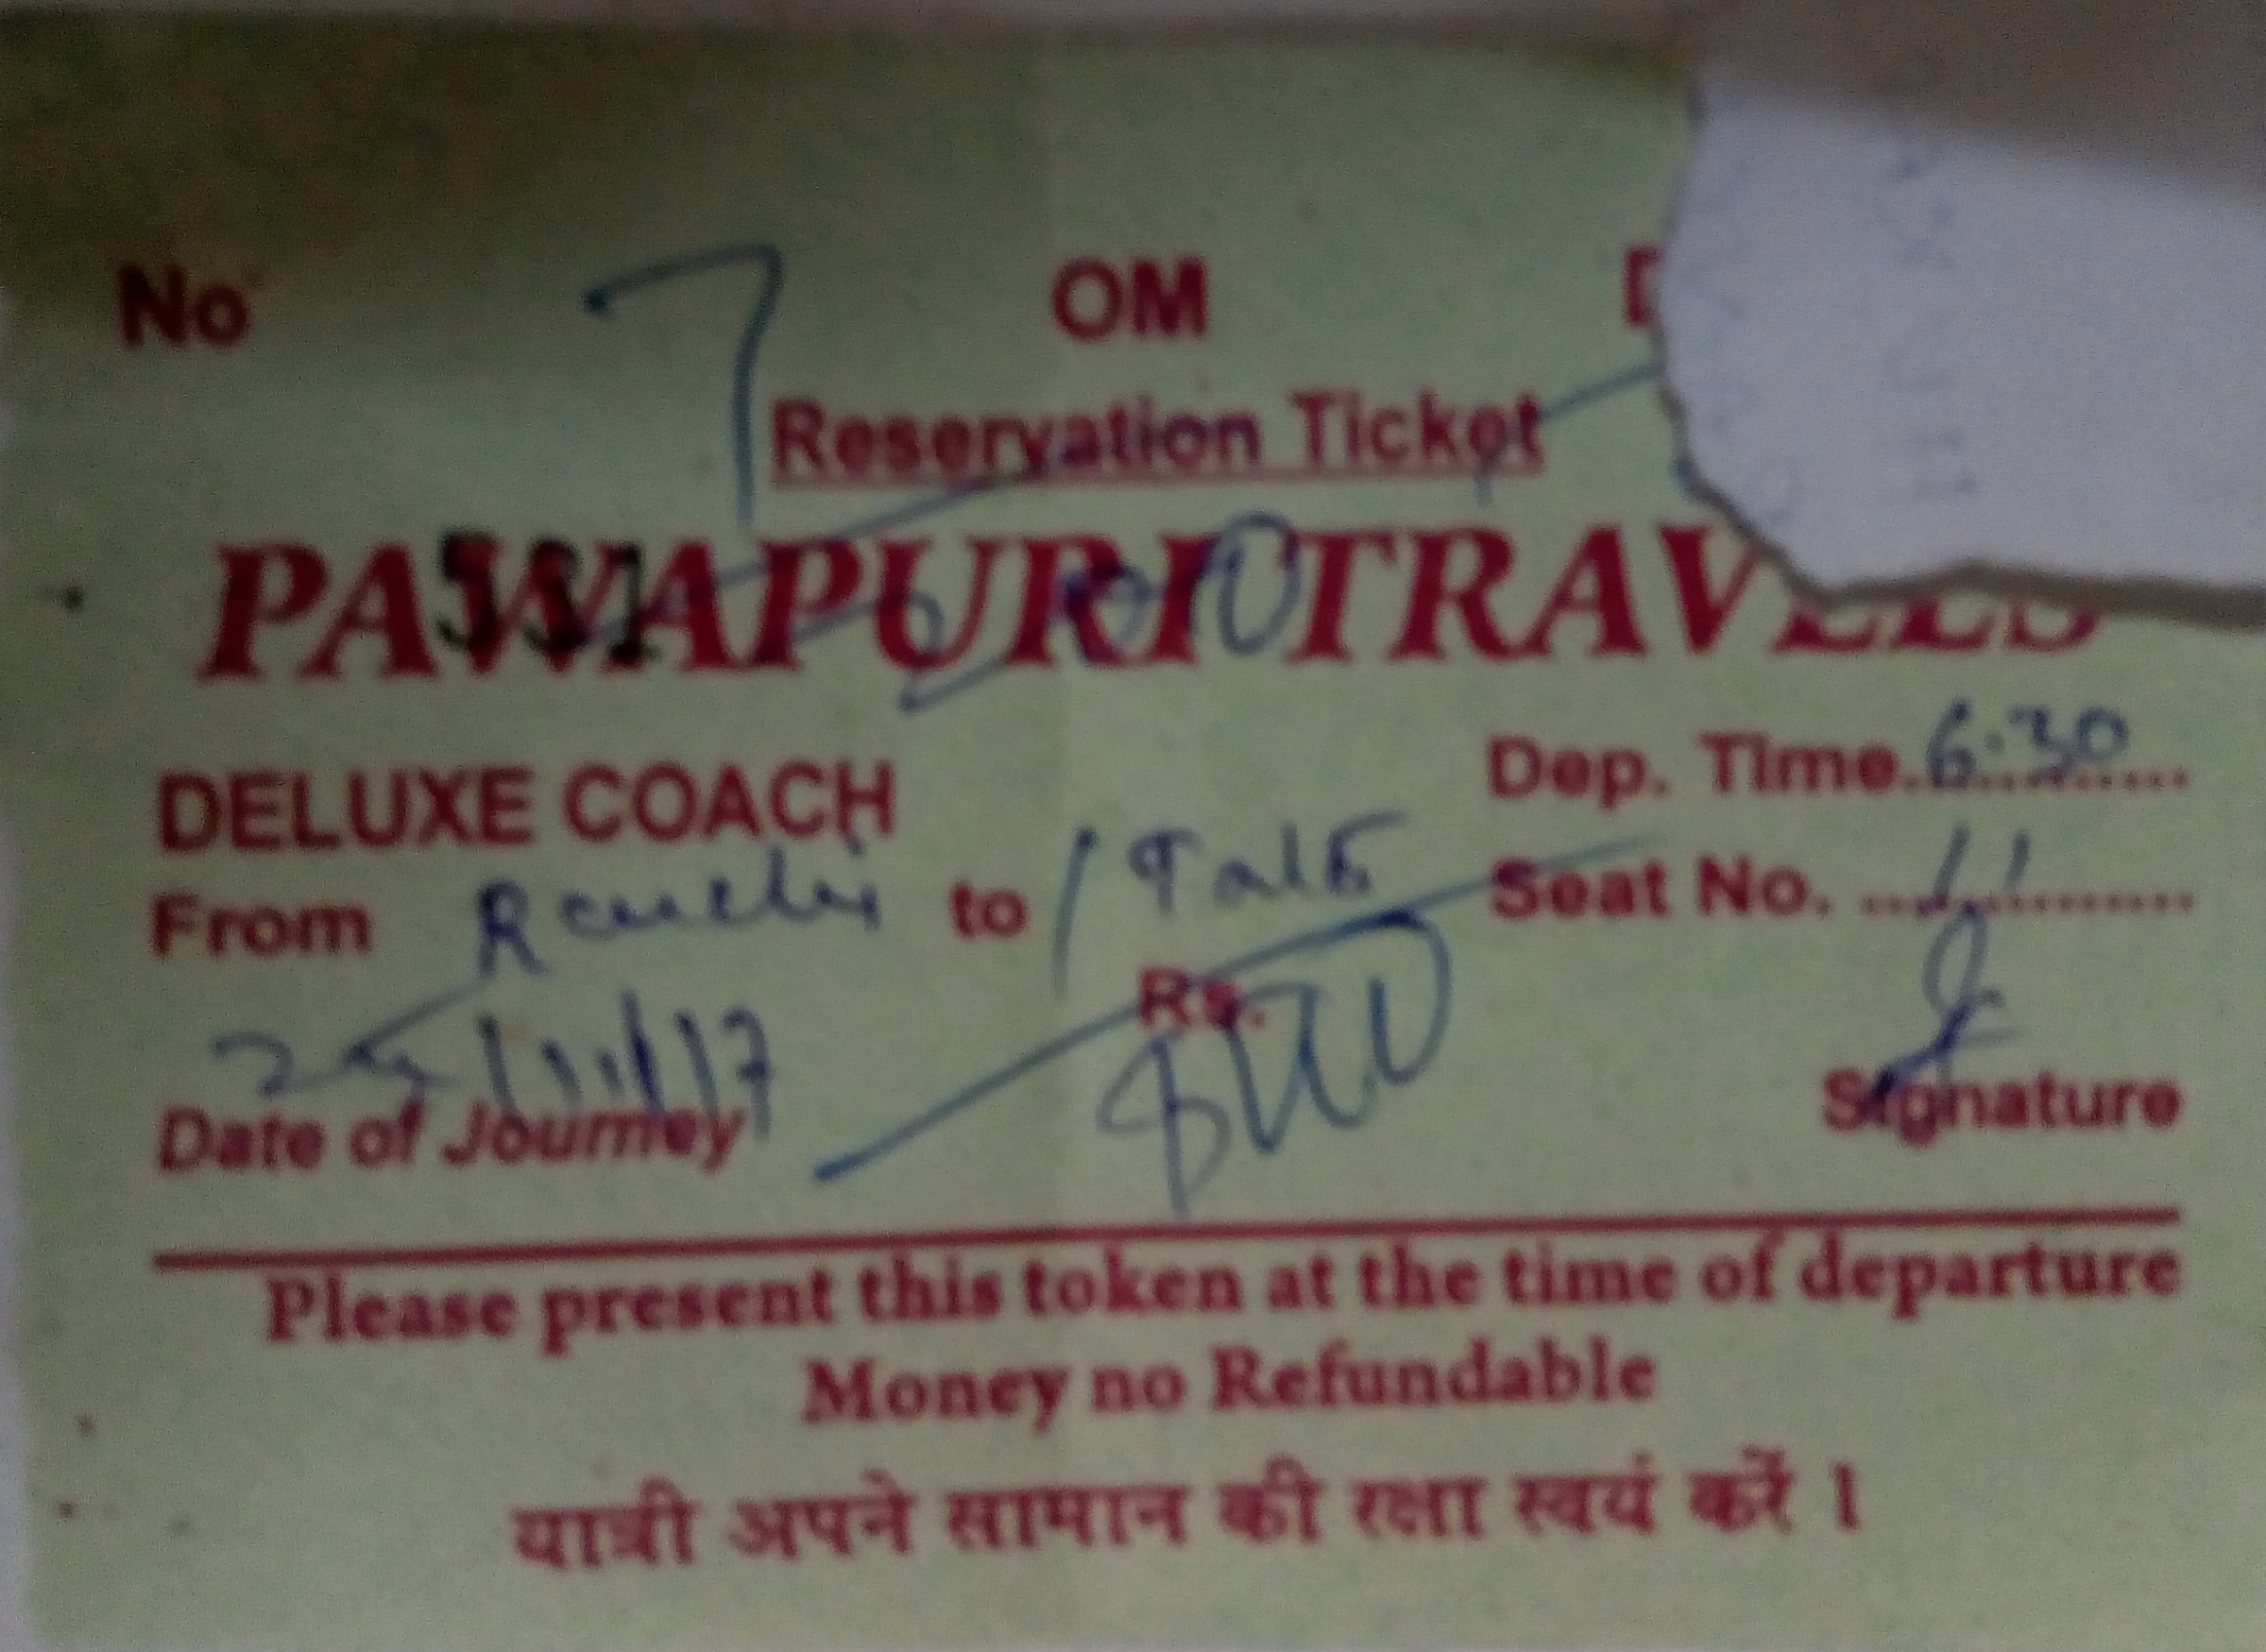 No OM
Reservation Ticket
PAWAPURI TRAVELS
531
DELUXE COACH Dep. Time. 6.30
From Ranchi to Seat No. 11
Rs.
25/11/17
Date of Journey Signature
Please present this token at the time of departure
Money no Refundable
यात्री अपने सामान की रक्षा स्वयं करें ।